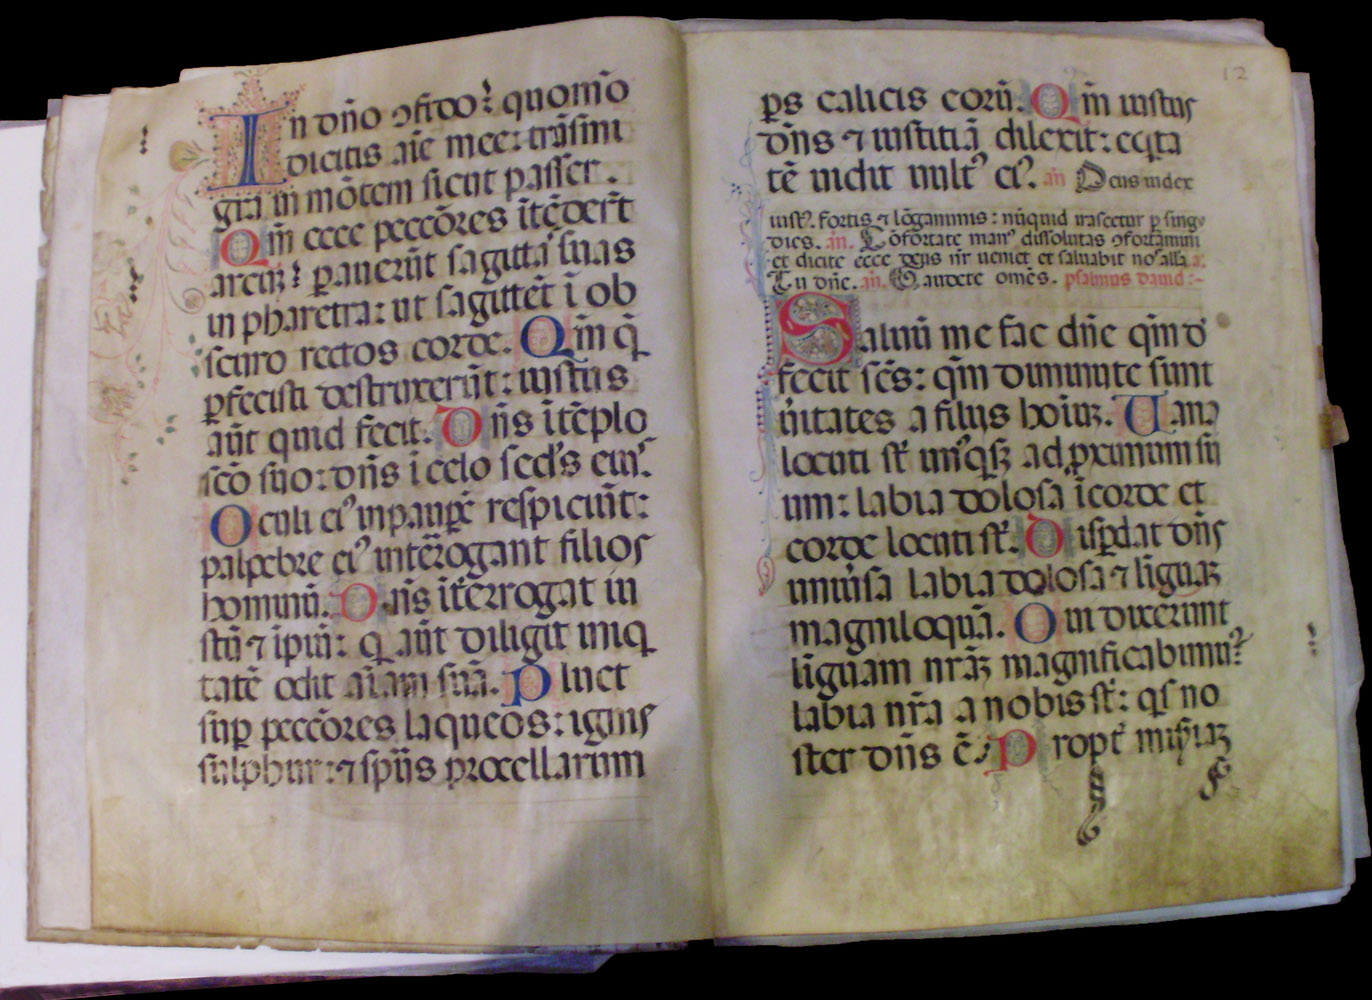 In dño ꝯfido: quomõ
dicitis aĩe mee: trãsmi
gra in mõtem sicut passer.
Qm̃ ecce peccõres ĩtẽder̃t
arcũ: parauerũt sagittas suas
in pharetra: ut sagittẽt ĩ ob
scuro rectos corde. Qm̃ q̃
ꝑfecisti destruxerũt: iustus
aũt quid fecit. Dñs ĩ tẽplo
sc̃o suo: dñs ĩ celo sedes eius.
Oculi eiꝰ in pauꝑẽ respiciũt:
palpebre eiꝰ intẽrogant filios
hominũ. Dñs ĩterrogat iu
stũ ⁊ ĩpiũ: q̃ aũt diligit iniq̃
tatẽ odit aĩam suã. Pluet
suꝑ peccõres laqueos: ignis
sulphur: ⁊ sp̃us procellarum
12
ꝑs calicis eorũ. Qm̃ iustus
dñs ⁊ iustitiã dilexit: eq̃ta
tẽ uidit uultꝰ eiꝰ. añ Deus iudex
iustꝰ. fortis ⁊ lõganimis: nũquid irascetur ꝑ singꝉos
dies. añ. Cõfortate manꝰ dissolutas ꝯfortamini
et dicite ecce deus nr̃ ueniet et saluabit nos alla. a.
Tu dñe. añ. Gaudete omẽs. psalmus dauid:-
Saluũ me fac dñe qm̃ de
fecit sc̃s: qm̃ diminute sunt
ũitates a filijs hoĩuꝝ. Uana
locuti st̃ unꝰqsqꝫ ad ꝓximum su
um: labia dolosa ĩ corde et
corde locuti st̃. Disꝑdat dñs
uniũsa labia dolosa ⁊ lĩguaꝫ
magniloquã. Qui dixerunt
lĩguam nr̃aꝫ magnificabimꝰ:
labia nr̃a a nobis st̃: qs no
ster dñs ẽ. Propt̃ misiaꝫ